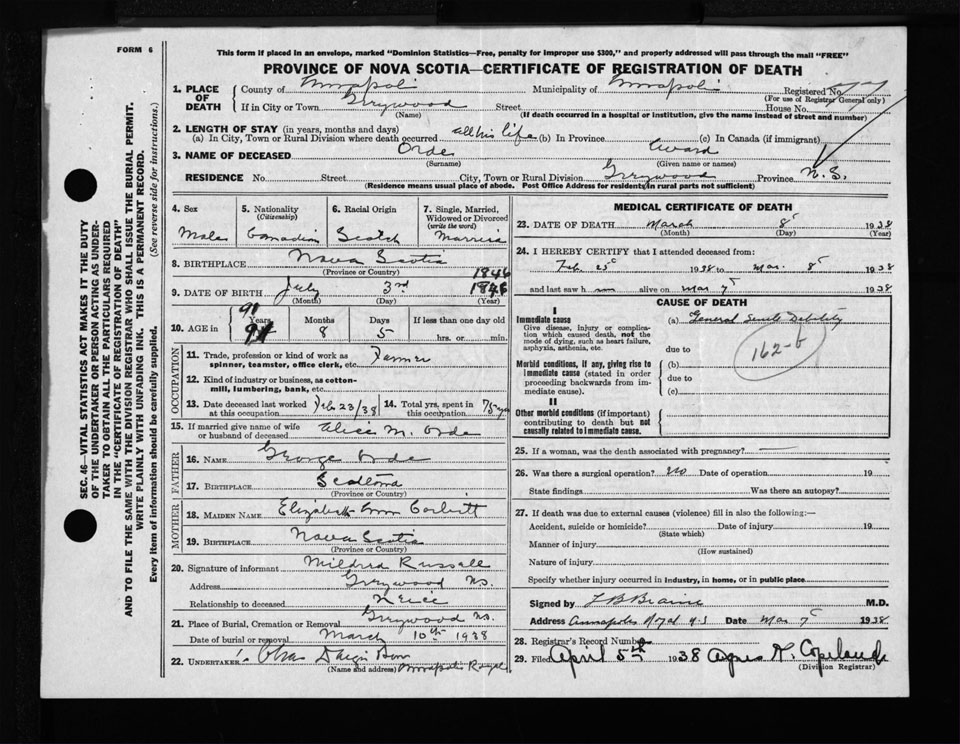 FORM 6
This form if placed in an envelope, marked "Dominion Statistics—Free, penalty for improper use $300," and properly addressed will pass through the mail "FREE"
PROVINCE OF NOVA SCOTIA—CERTIFICATE OF REGISTRATION OF DEATH
1. PLACE OF DEATH County of Annapolis Municipality of Annapolis Registered No.
(For use of Registrar General only)
If in City or Town Greywood Street House No.
(Name) (If death occurred in a hospital or institution, give the name instead of street and number)
2. LENGTH OF STAY (in years, months and days)
(a) In City, Town or Rural Division where death occurred all his life (b) In Province (c) In Canada (if immigrant)
3. NAME OF DECEASED Orde
(Surname) (Given name or names)
RESIDENCE No. Street City, Town or Rural Division Greywood Province N.S.
(Residence means usual place of abode. Post Office Address for residents in rural parts not sufficient)
4. Sex 5. Nationality (Citizenship) 6. Racial Origin 7. Single, Married, Widowed or Divorced (write the word)
Male Canadian Scotch Married
8. BIRTHPLACE Nova Scotia
(Province or Country)
1846
9. DATE OF BIRTH July 3rd 1846
(Month) (Day) (Year)
91
10. AGE in Years Months Days If less than one day old
8 5 hrs. or min.
OCCUPATION
11. Trade, profession or kind of work as spinner, teamster, office clerk, etc. Farmer
12. Kind of industry or business, as cotton-mill, lumbering, bank, etc.
13. Date deceased last worked at this occupation Feb 23/38 14. Total yrs. spent in this occupation 75 yrs
15. If married give name of wife or husband of deceased Alice M. Orde
FATHER
16. NAME George Orde
17. BIRTHPLACE Scotland
(Province or Country)
MOTHER
18. MAIDEN NAME Elizabeth Ann Corbitt
19. BIRTHPLACE Nova Scotia
(Province or Country)
20. Signature of informant Mildred Russell
Address Greywood N.S.
Relationship to deceased Neice
21. Place of Burial, Cremation or Removal Greywood N.S.
Date of burial or removal March 10th 1938
22. UNDERTAKER Chas Dargie
(Name and address) Annapolis Royal
MEDICAL CERTIFICATE OF DEATH
23. DATE OF DEATH March 8 1938
(Month) (Day) (Year)
24. I HEREBY CERTIFY that I attended deceased from:
Feb 25 1938 to Mar. 8 1938
and last saw him alive on Mar 7 1938
CAUSE OF DEATH
I
Immediate cause (a) General Senile Debility
Give disease, injury or complication which caused death, not the mode of dying, such as heart failure, asphyxia, asthenia, etc.
due to
162-b
Morbid conditions, if any, giving rise to immediate cause (stated in order proceeding backwards from immediate cause). (b)
due to
(c)
II
Other morbid conditions (if important) contributing to death but not causally related to immediate cause.
25. If a woman, was the death associated with pregnancy?
26. Was there a surgical operation? No Date of operation 19
State findings Was there an autopsy?
27. If death was due to external causes (violence) fill in also the following:—
Accident, suicide or homicide? Date of injury 19
(State which)
Manner of injury
(How sustained)
Nature of injury
Specify whether injury occurred in industry, in home, or in public place
Signed by L B Braine M.D.
Address Annapolis Royal N S Date Mar 7 1938
28. Registrar's Record Number
29. Filed April 5th 1938 Agnes H. Copeland
(Division Registrar)
SEC. 46—VITAL STATISTICS ACT MAKES IT THE DUTY
OF THE UNDERTAKER OR PERSON ACTING AS UNDER-
TAKER TO OBTAIN ALL THE PARTICULARS REQUIRED
IN THE "CERTIFICATE OF REGISTRATION OF DEATH"
AND TO FILE THE SAME WITH THE DIVISION REGISTRAR WHO SHALL ISSUE THE BURIAL PERMIT.
WRITE PLAINLY WITH UNFADING INK. THIS IS A PERMANENT RECORD.
Every item of information should be carefully supplied. (See reverse side for instructions.)